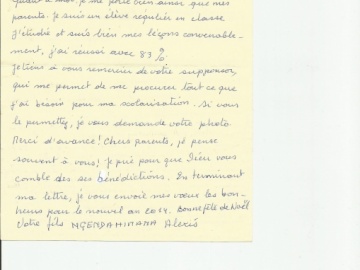 quant à moi, je me porte bien ainsi que mes
parents. Je suis un élève régulier en classe
J'étudie et suis bien mes leçons convenable-
ment, j'ai réussi avec 83 %
Je tiens à vous remercier de votre supponsor,
qui me permet de me procurer tout ce que
j'ai besoin pour ma scolarisation. Si vous
le permettez, je vous demande votre photo
Merci d'avance! Chers parents, je pense
souvent à vous! Je prie pour que Dieu vous
comble des ses bénédictions. En terminant
ma lettre, je vous envoie mes vœux les bon-
heurs pour le nouvel an 2014. Bonne fête de Noël
Votre fils NGENDAHIMANA Alexis